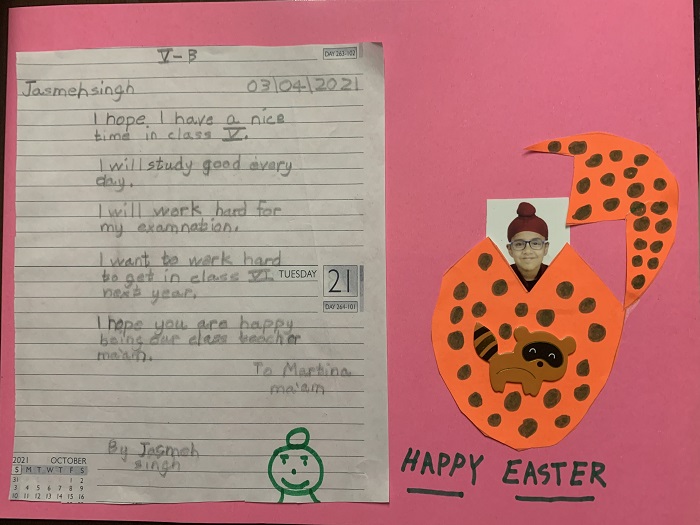 V-B
DAY 263-102
Jasmehsingh 03/04/2021
I hope I have a nice
time in class V.
I will study good every
day.
I will work hard for
my examnation.
I want to work hard
to get in class VI
next year.
TUESDAY 21
DAY 264-101
I hope you are happy
being our class teacher
ma'am.
To Martina
ma'am
By Jasmeh
singh
2021 OCTOBER
S M T W T F S
31 1 2
3 4 5 6 7 8 9
10 11 12 13 14 15 16
HAPPY EASTER